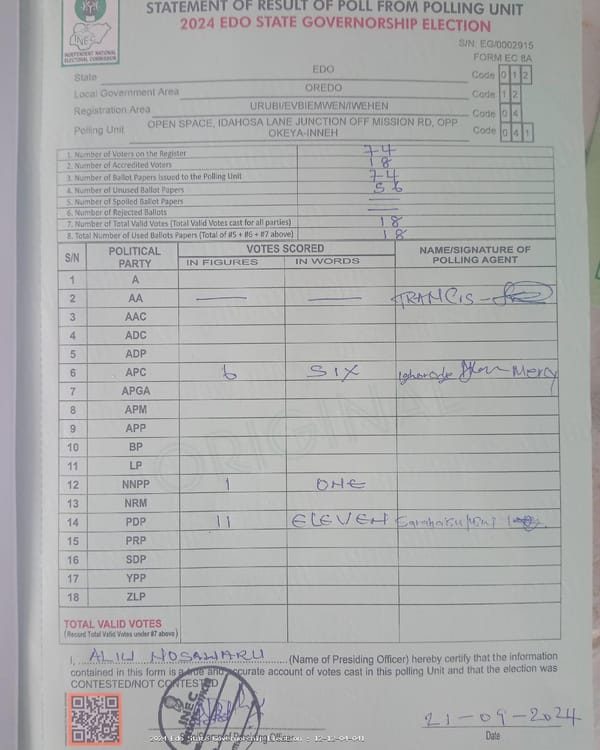 STATEMENT OF RESULT OF POLL FROM POLLING UNIT
2024 EDO STATE GOVERNORSHIP ELECTION
INEC
INDEPENDENT NATIONAL
ELECTORAL COMMISSION
S/N: EG/0002915
FORM EC 8A
State EDO Code 0 1 2
Local Government Area OREDO Code 1 2
Registration Area URUBI/EVBIEMWEN/IWEHEN Code 0 4
Polling Unit OPEN SPACE, IDAHOSA LANE JUNCTION OFF MISSION RD, OPP OKEYA-INNEH Code 0 4 1
1. Number of Voters on the Register 74
2. Number of Accredited Voters 18
3. Number of Ballot Papers Issued to the Polling Unit 74
4. Number of Unused Ballot Papers 56
5. Number of Spoiled Ballot Papers —
6. Number of Rejected Ballots —
7. Number of Total Valid Votes (Total Valid Votes cast for all parties) 18
8. Total Number of Used Ballots Papers (Total of #5 + #6 + #7 above) 18
S/N POLITICAL PARTY VOTES SCORED NAME/SIGNATURE OF POLLING AGENT
IN FIGURES IN WORDS
1 A
2 AA — — FRANCIS
3 AAC
4 ADC
5 ADP
6 APC 6 SIX Mercy
7 APGA
8 APM
9 APP
10 BP
11 LP
12 NNPP 1 ONE
13 NRM
14 PDP 11 ELEVEN
15 PRP
16 SDP
17 YPP
18 ZLP
ORIGINAL
TOTAL VALID VOTES
(Record Total Valid Votes under #7 above)
I, ALIU NOSAWARU (Name of Presiding Officer) hereby certify that the information
contained in this form is a true and accurate account of votes cast in this polling Unit and that the election was
CONTESTED/NOT CONTESTED
INEC
21-09-2024
Officer
Date
2024 Edo State Governorship Election : 12-12-04-041